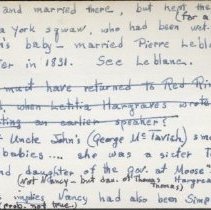 and married there, but kept the
(for a
a york squaw, who had been wet-
n's baby - married Pierre Leblanc
fer in 1831. See Leblanc.
must have returned to Red Ri
d, when Letitia Hargraves wrote
ting an earlier speaker!
f Uncle John's (George McTavish) sma
babies.... she was a sister T
nd daughter of the gov. at Moose"
(Not Nancy - but dau. of Thomas, Hargrave
Thomas)
s implies Nancy had also been Simp
(prob. not true.)